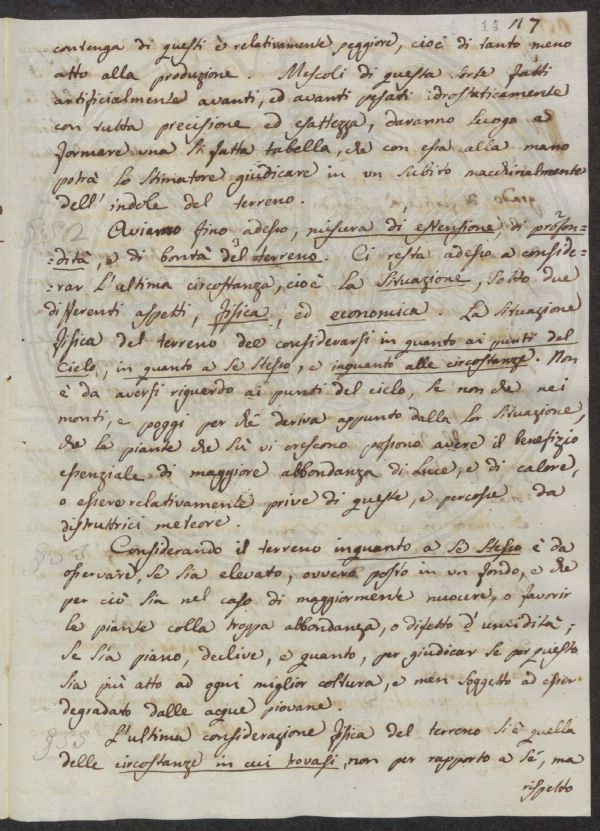 117
contenga di questi è relativamente peggiore, cioè di tanto meno
atto alla produzione. Mescoli di questa sorte fatti
artificialmente avanti, ed avanti pesati idrostaticamente
con tutta precisione ed esattezza, daranno luogo a
formare una sì fatta tabella, che con essa alla mano
potrà lo stimatore giudicare in un subito macchinalmente
dell'indole del terreno.
Aviamo fino adesso, misura di estensione, di profon=
=dità, e di bontà del terreno. Ci resta adesso a conside=
=rar l'ultima circostanza, cioè la situazione, sotto due
differenti aspetti, fisica, ed economica. La situazione
fisica del terreno dee considerarsi in quanto ai punti del
Cielo, in quanto a se stesso, e inquanto alle circostanze. Non
è da aversi riguardo ai punti del cielo, se non che nei
monti, e poggi per chè deriva appunto dalla lor situazione,
che le piante che sù vi crescono possono avere il benefizio
essenziale di maggiore abbondanza di luce, e di calore,
o essere relativamente prive di queste, e percosse da
distruttrici meteore.
Considerando il terreno inquanto a se stesso è da
osservare, se sia elevato, ovvero posto in un fondo, e che
per ciò sia nel caso di maggiormente nuocere, o favorir
le piante colla troppa abbondanza, o difetto d'umidità;
se sia piano, declive, e quanto, per giudicar se per questo
sia più atto ad ogni miglior coltura, e men soggetto ad esser
degradato dalle acque piovane.
L'ultima considerazione fisica del terreno si è quella
delle circostanze in cui trovasi, non per rapporto a sé, ma
rispetto